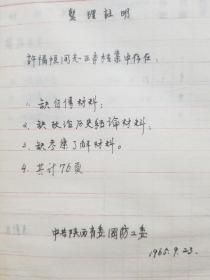 整理証明
許倩恆同志正本档案中存在:
1. 缺自傳材料;
2. 缺政治历史结論材料;
3. 缺参黨了解材料。
4. 共计76頁
中共陕西省委国防工委
1965.9.23.